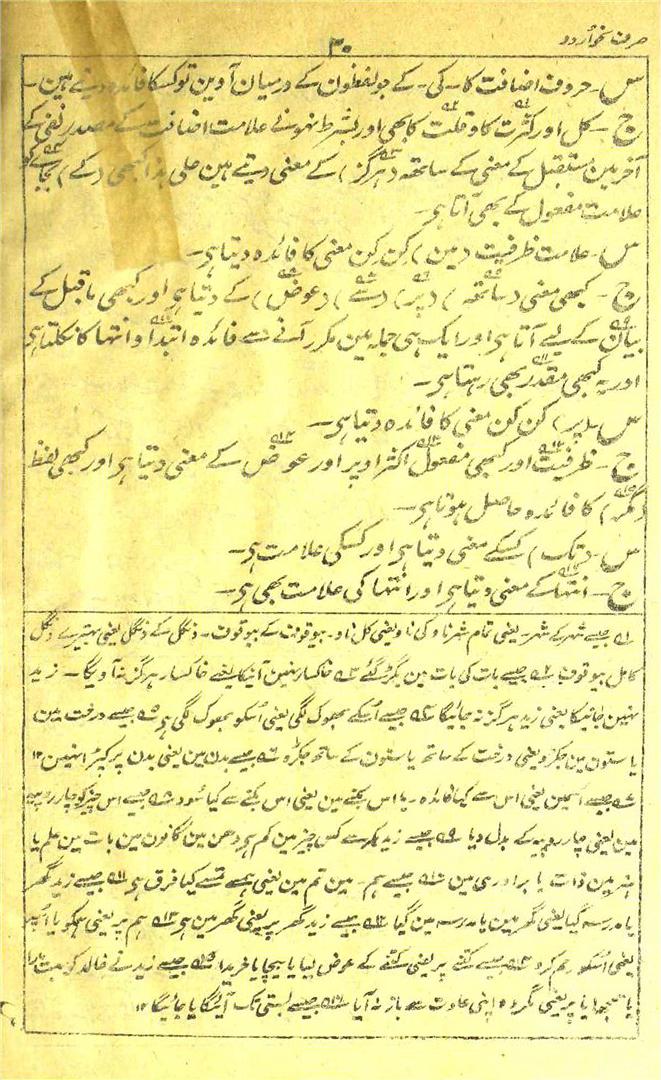 ۳۰
صرف نحو اُردو
س۔ حروف اضافت کا۔ کی۔ کے جو لفظون کے درمیان آوین تو کسکا فائدہ دیتے ہین۔
ج۔ کل اور کثرت کا و قلت کا بھی اور بشرط نہونے علامت اضافت کے مصدر نفی کے
آخر مین مستقبل کے معنی کے ساتھہ (ہرگز) کے معنی دیتے ہین علی ہذا کبھی (کے) بجائے کو
علامت مفعول کے بھی آتا ہی۔
س۔ علامت ظرفیت (مین) کن کن معنی کا فائدہ دیتا ہی۔
ج۔ کبھی معنی (ساتھہ) (پر) (سے) (عوض) کے دیتا ہی اور کبھی ماقبل کے
بیان کے لیے آتا ہی اور ایک ہی جملہ مین مکرر آنے سے فائدہ ابتدا و انتہا کا نکلتا ہی
اور یہ کبھی مقدر بھی رہتا ہی۔
س۔ (پر) کن کن معنی کا فائدہ دیتا ہی۔
ج۔ ظرفیت اور کبھی مفعول اکثر اوپر اور عوض کے معنی دیتا ہی اور کبھی لفظ
(مگر) کا فائدہ حاصل ہوتا ہی۔
س۔ (تک) کسکے معنی دیتا ہی اور کسکی علامت ہی۔
ج۔ انتہا کے معنی دیتا ہی اور انتہا کی علامت بھی ہی۔
۱ جیسے شہر کے شہر۔ یعنی تمام شہر ناؤ کی ناؤ یعنی کل ناؤ۔ بیوقوف کے بیوقوف۔ دنگل کے دنگل یعنی بہتیرے دنگل
کامل بیوقوف ۲ جیسے بات کی بات مین بگڑ گئے ۳ خاکسار نہین آنیکا یعنے خاکسار ہرگز نہ آویگا۔ زید
نہین جانیکا یعنی زید ہرگز نہ جائیگا ۴ جیسے اُسکے بھوک لگی یعنی اُسکو بھوک لگی ہی ۵ جیسے درخت مین
یا ستون مین جکڑو یعنی درخت کے ساتھہ یا ستون کے ساتھہ جکڑو ۶ جیسے بدن مین یعنی بدن پر کپڑا نہین ۱۲
۷ جیسے اسمین یعنی اس سے کیا فائدہ۔ یا اس بکنے مین یعنی اس بکنے سے کیا سود ۸ جیسے اس چیز کو چار روپیہ
مین یعنی چار روپیہ کے بدل دیا ۹ جیسے زید بکر سے کس چیز مین کم ہی دھن مین گانون مین بات مین علم یا
ہنر مین ذات یا برادری مین ۱۰ جیسے ہم۔ مین تم مین یعنی ہمسے تمسے کیا فرق ہی ۱۱ جیسے زید گھر
یا مدرسہ گیا یعنی گھر مین یا مدرسہ مین گیا ۱۲ جیسے زید گھر پر یعنی گھر مین ہی ۱۳ ہم پر یعنی ہمکو یا اُسپر
یعنی اُسکو رحم کرو ۱۴ جیسے کتنے پر یعنی کتنے کے عوض لیا یا بیچا یا خریدا ۱۵ جیسے زید نے خالد کو بہت مارا
یا سمجھایا پر یعنی مگر وہ اپنی عادت سے باز نہ آیا ۱۶ جیسے بستی تک آئیگا یا جائیگا ۱۲